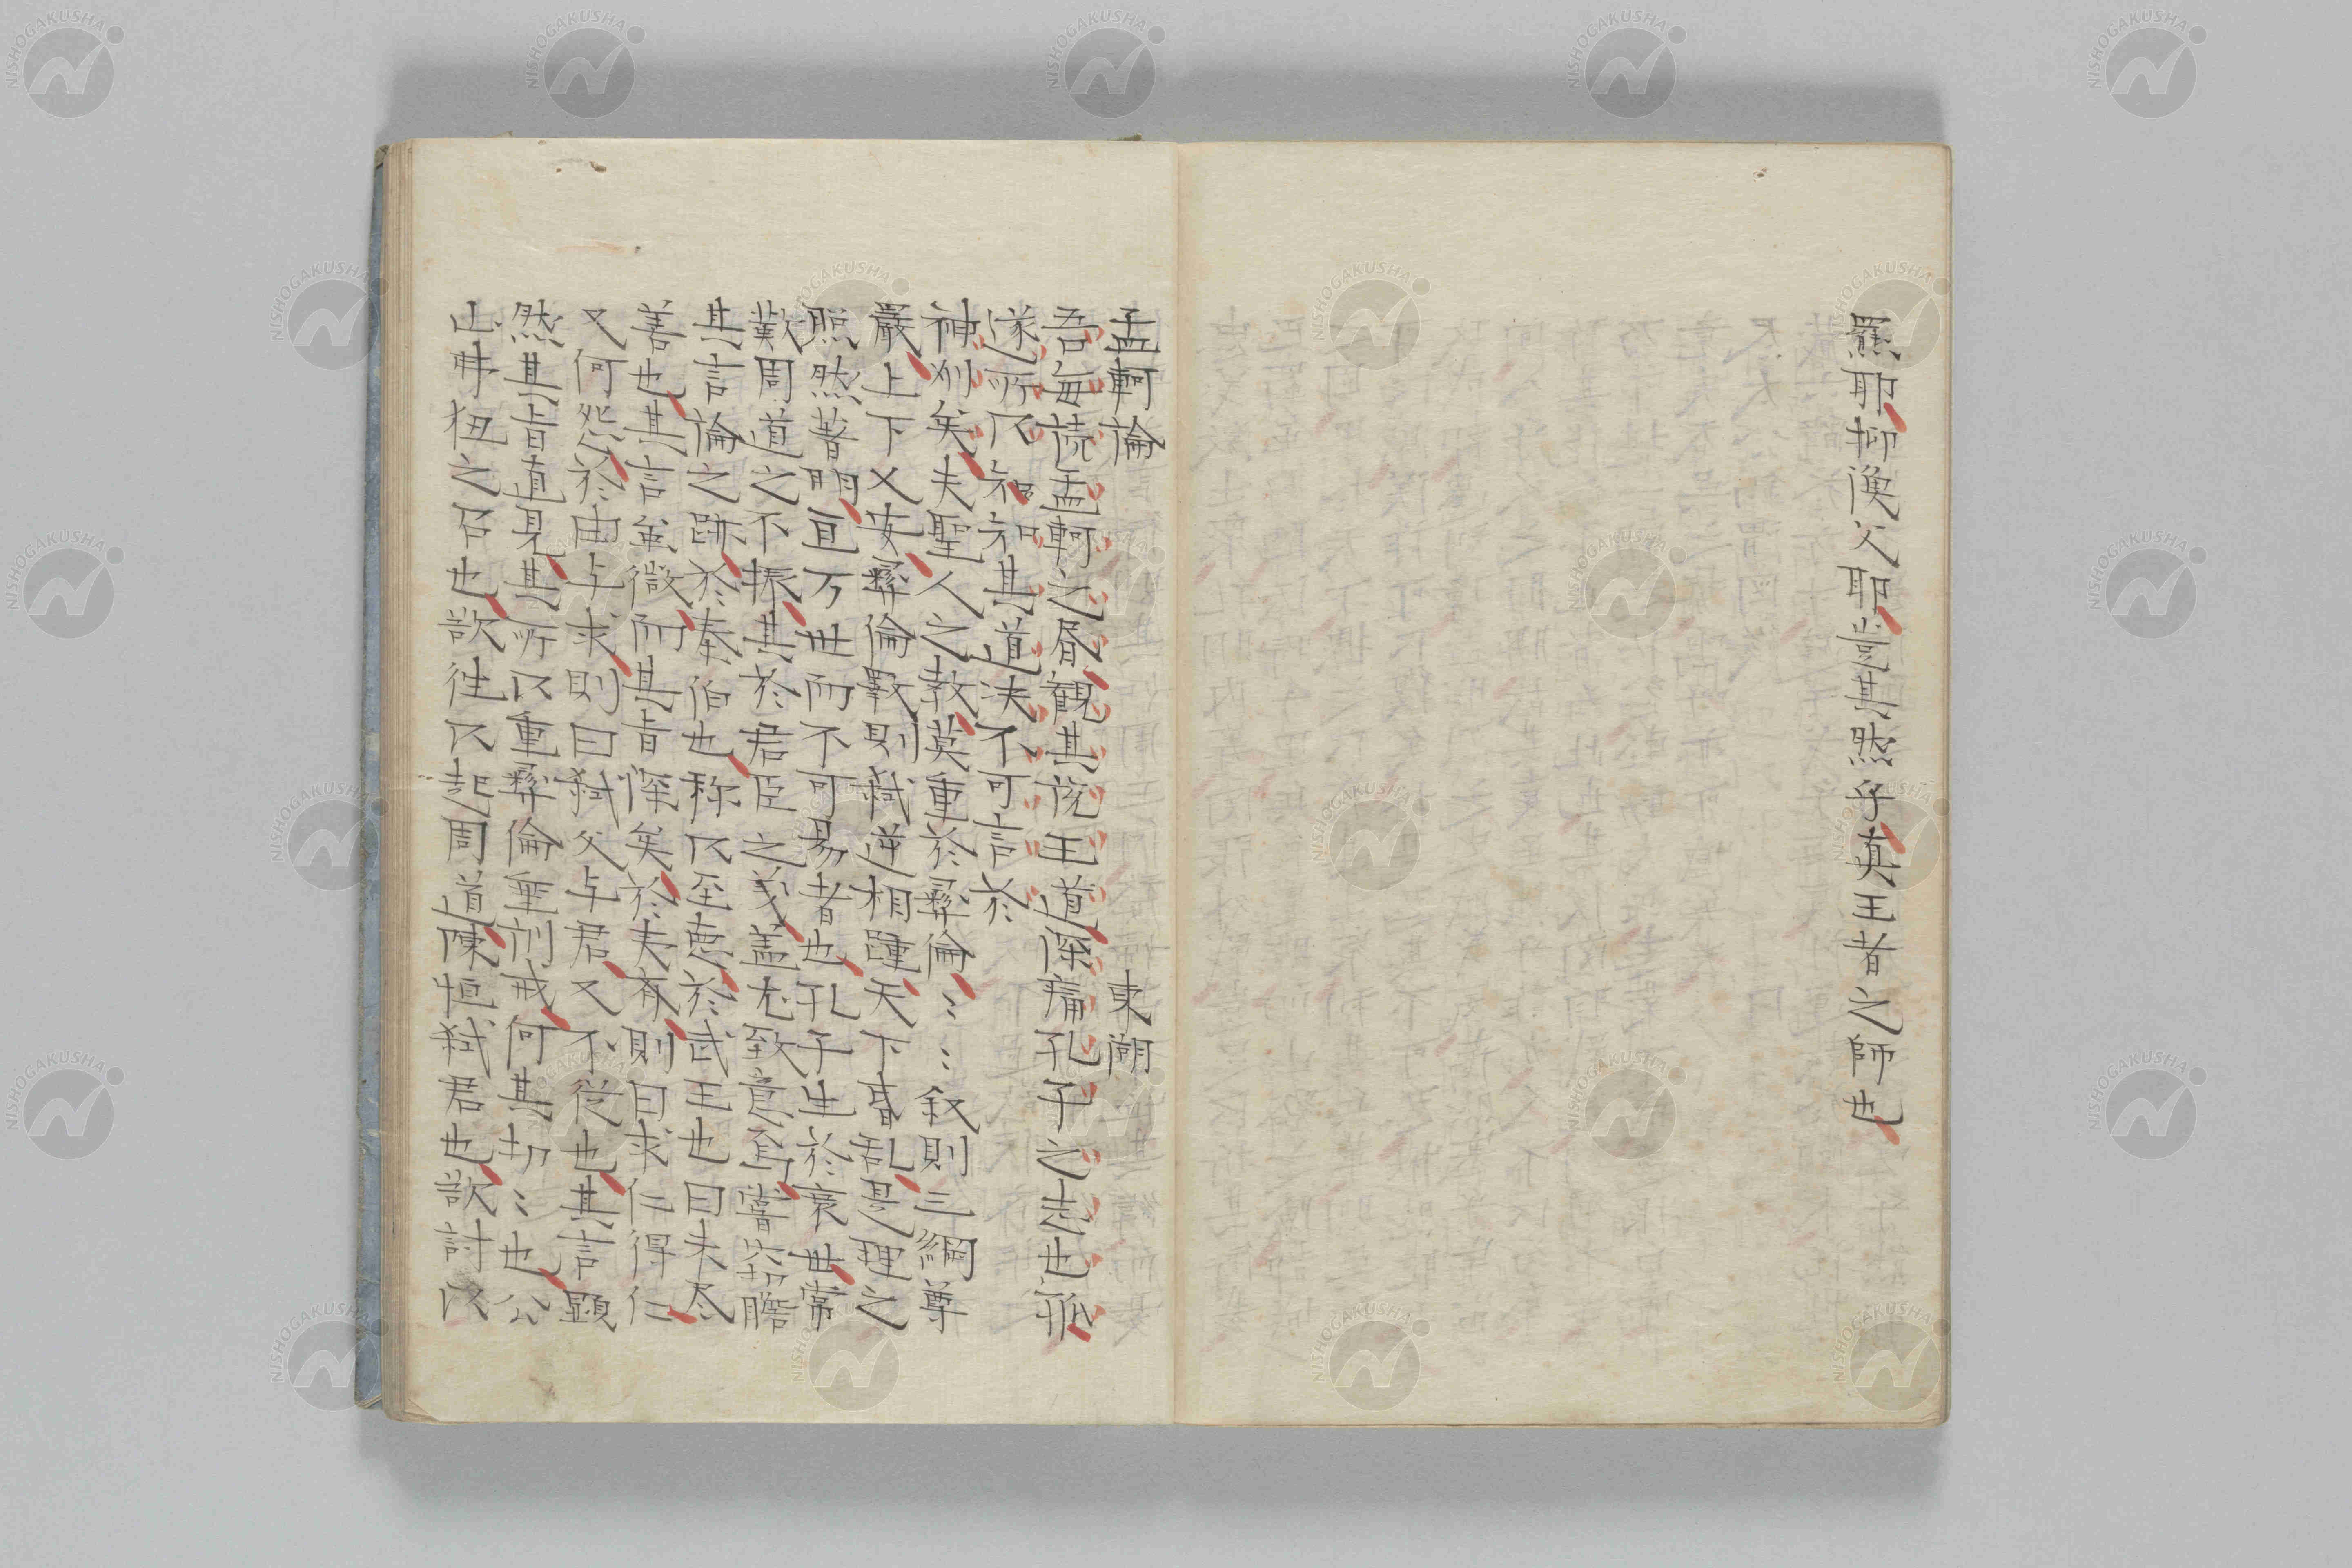 羆耶抑漁父耶豈其然乎真王者之師也
孟軻論 東湖
吾每読孟軻之書観其説王道深痛孔子之志也孤
遂所以知其道決不可言於
神州矣夫聖人之教莫重於彝倫〻〻叙則三綱尊
嚴上下乂安彝倫斁則弑逆相踵天下昏乱是理之
照然著明亘万世而不可易者也孔子生於衰世常
歎周道之不振其於君臣之義盖尤致意焉嘗窃謄
其言論之跡於泰伯也称以至悳於武王也曰未尽
善也其言虽微而其旨深矣於夷斉則曰求仁得仁
又何怨於由与求則曰弑父与君又不從也其言顕
然其旨直見其所以重彝倫垂訓戒何其切〻也公
山弗狃之召也欲往以起周道陳恒弑君也欲討以
NISHOGAKUSHA